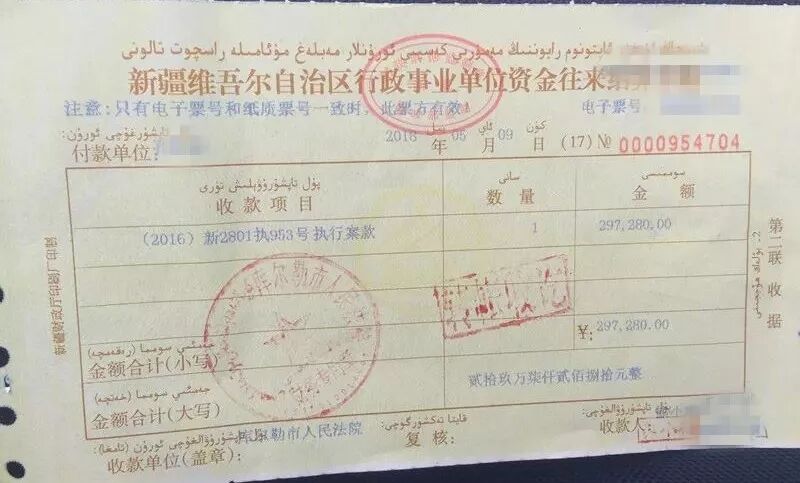 ئاپتونوم رايونىنىڭ مەمۇرىي كەسپىي ئورۇنلار مەبلەغ مۇئامىلە راسچوت تالونى
新疆维吾尔自治区行政事业单位资金往来结
注意:只有电子票号和纸质票号一致时,此票方有效! 电子票号
付款单位:
2018 年 05 月 09 日 (17) № 0000954704
پۇل تاپشۇرۇۋېلىش تۈرى سانى سوممىسى
收款项目 数量 金额
(2016) 新2801执953号执行案款 1 297,280.00
库尔勒市人民法院
جەمئىي سومما (رەقەمچە)
金额合计(小写) ¥: 297,280.00
جەمئىي سومما (خەتچە)
金额合计(大写) 贰拾玖万柒仟贰佰捌拾元整
库尔勒市人民法院
收款单位(盖章): 复核: 收款人:
第二联收据